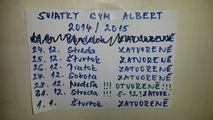 SVIATKY GYM ALBERT
2014 / 2015
ZATVORENÉ
24. 12. Streda ZATVORENÉ
25. 12. Štvrtok ZATVORENÉ
26. 12. Piatok ZATVORENÉ
27. 12. Sobota ZATVORENÉ
28. 12. Nedeľa !!! OTVORENÉ !!!
31. 12. Streda 8-12 ZATVOR.
1. 1. Štvrtok ZATVORENÉ